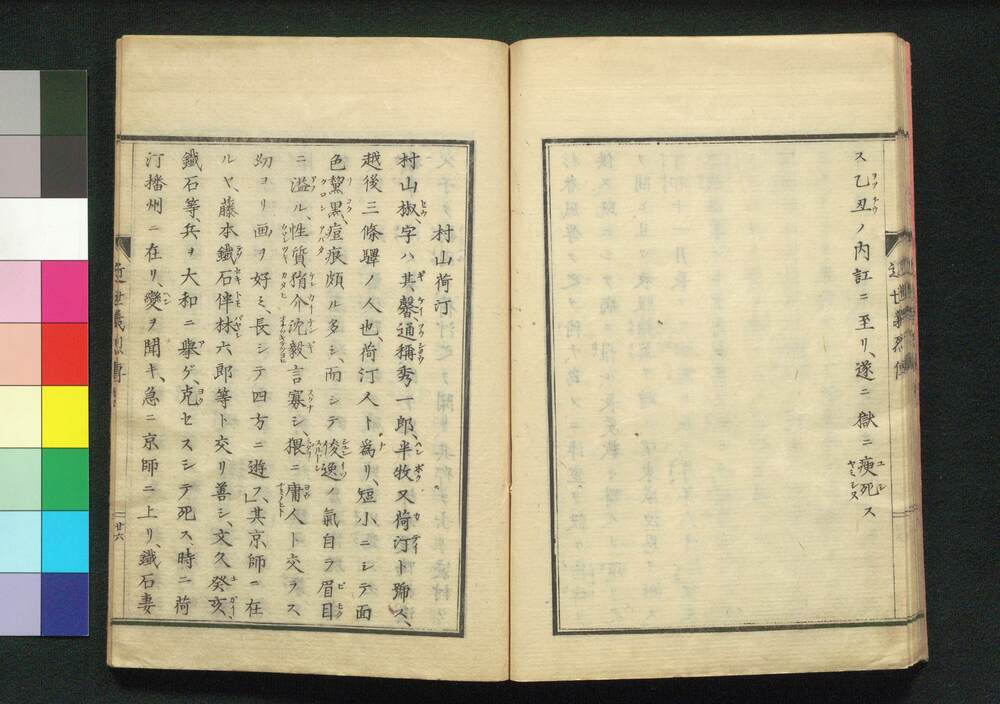 ス乙丑ノ内訌ニ至リ、遂ニ獄ニ瘐死ス
村山荷汀
村山椒、字ハ其馨、通稱秀一郎、半牧又荷汀ト號ス、
越後三條驛ノ人也、荷汀人ト爲リ、短小ニシテ面
色黧黒、痘痕頗ル多シ、而シテ俊逸ノ氣自ラ眉目
ニ溢ル、性質狷介沈毅言寡シ、猥ニ庸人ト交ラス
幼ヨリ画ヲ好ミ、長シテ四方ニ遊フ、其京師ニ在
ルヤ、藤本鐵石伴林六郎等ト交リ善シ、文久癸亥、
鐵石等、兵ヲ大和ニ擧ゲ、克セスシテ死ス、時ニ荷
汀播州ニ在リ、變ヲ聞キ、急ニ京師ニ上リ、鐵石妻
近世義烈傳
廿六